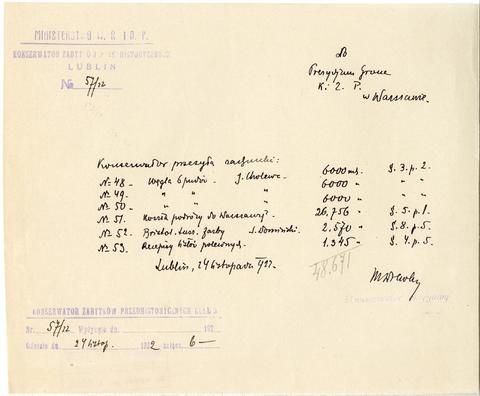 MINISTERSTWO W. R. I O. P.
KONSERWATOR ZABYTKÓW PREHISTORYCZNYCH
LUBLIN
№ 57/22
Do
Prezydjum Grona
K. Z. P.
w Warszawie.
Konserwator przesyła rachunki:
№ 48 - Węgla 6 pudów J. Cholewa - 6000 m. § 3. p. 2.
№ 49. " " " 6000 " " "
№ 50 - " " " 6000 " " "
№ 51. Koszta podróży do Warszawy. 26,756 " § 5. p. 1.
№ 52. Bristol. tusz. farby J. 2.570 " § 8. p. 5.
№ 53. Recepisy listów poleconych. 1.345 " § 4. p. 5.
48.671
Lublin, 24 listopada
Konserwator
KONSERWATOR ZABYTKÓW PRZEDHISTORYCZNYCH
Nr. 57/22 Wpłynęło dn. 192
dn. 24 listop. 1922 załącz. 6 —